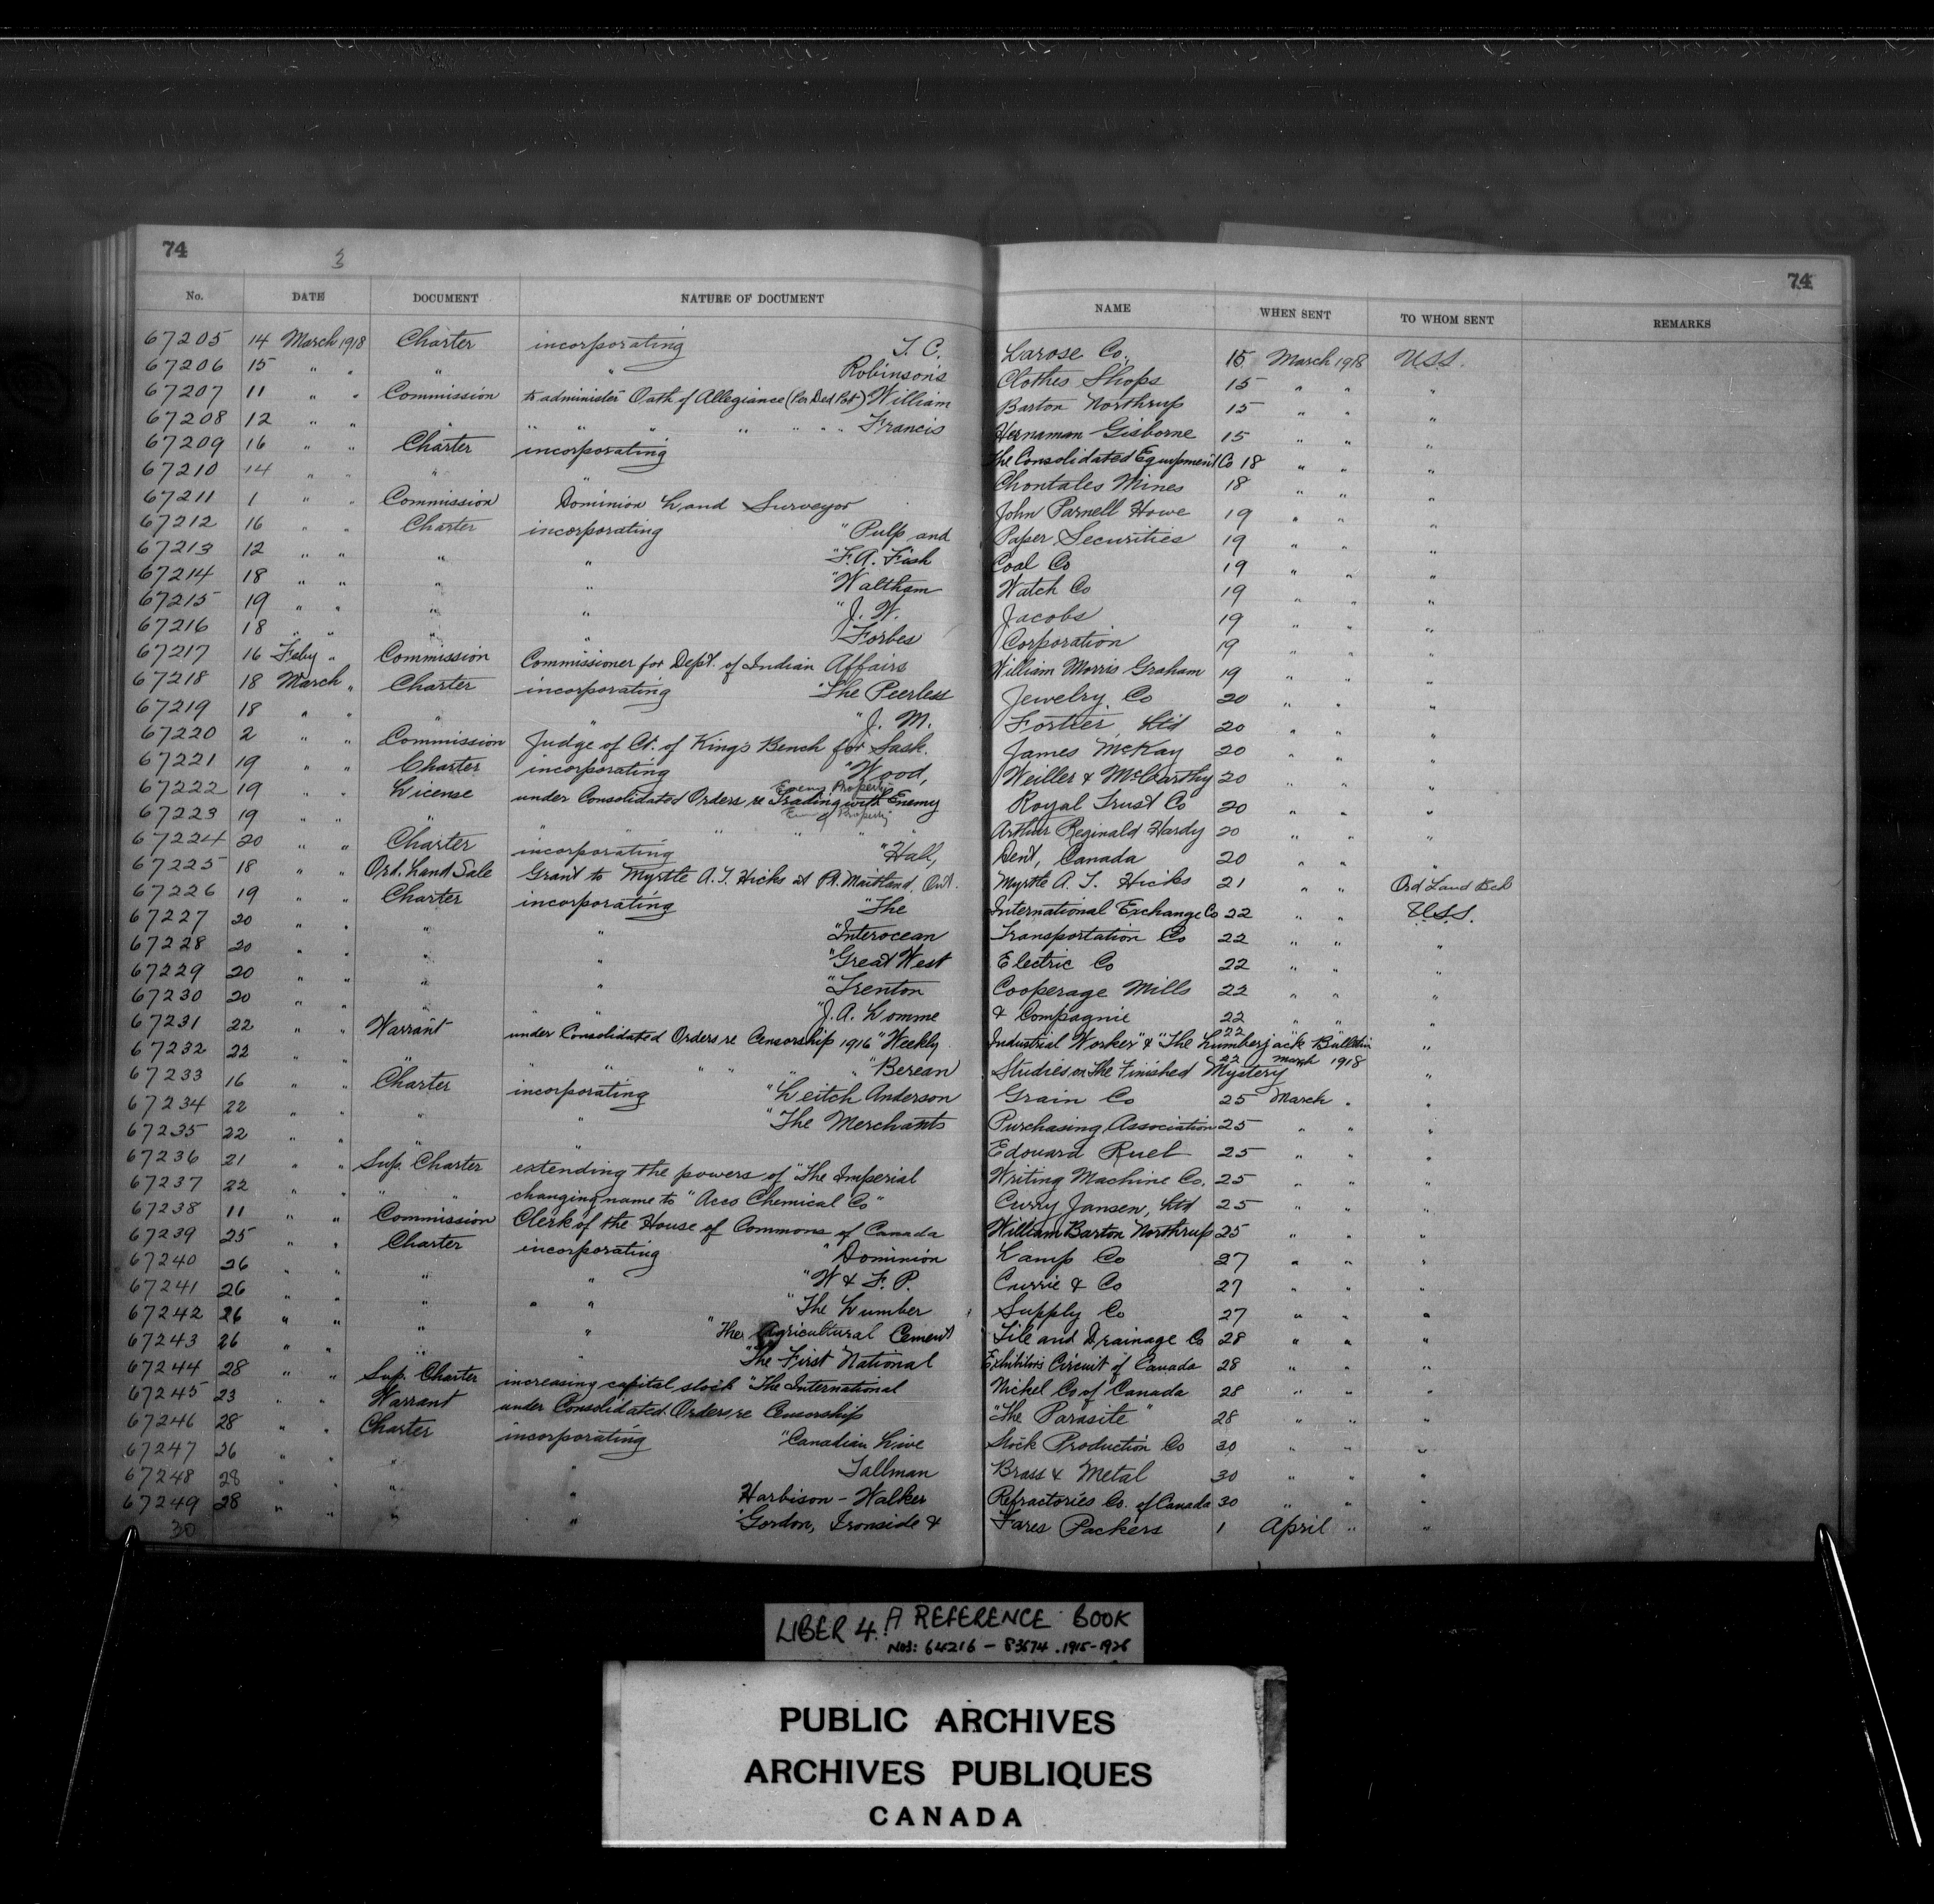 74 3 74
No. DATE DOCUMENT NATURE OF DOCUMENT NAME WHEN SENT TO WHOM SENT REMARKS
67205 14 March 1918 Charter incorporating J. C. Larose Co. 15 March 1918 U.S.S.
67206 15 " " " " Robinson's Clothes Shops 15 " " "
67207 11 " " Commission to administer Oath of Allegiance (Per Ded Pot) William Barton Northrup 15 " " "
67208 12 " " " " " " " " " " Francis Hernaman Gisborne 15 " " "
67209 16 " " Charter incorporating The Consolidated Equipment Co 18 " " "
67210 14 " " " " Chontales Mines 18 " " "
67211 1 " " Commission Dominion Land Surveyor John Parnell Howe 19 " " "
67212 16 " " Charter incorporating "Pulp and Paper Securities 19 " " "
67213 12 " " " " "F. A. Fish Coal Co 19 " " "
67214 18 " " " " "Waltham Watch Co 19 " " "
67215 19 " " " " "J. W. Jacobs 19 " " "
67216 18 " " " " Forbes Corporation 19 " " "
67217 16 Feby " Commission Commissioner for Dept. of Indian Affairs William Morris Graham 19 " " "
67218 18 March " Charter incorporating "The Peerless Jewelry Co 20 " " "
67219 18 " " " " "J. M. Fortier Ltd 20 " " "
67220 2 " " Commission Judge of Ct. of King's Bench for Sask. James McKay 20 " " "
67221 19 " " Charter incorporating "Wood, Weiller & McCarthy 20 " " "
Enemy Property
67222 19 " " License under Consolidated Orders re Trading with Enemy Royal Trust Co 20 " " "
67223 19 " " " " " " " " Arthur Reginald Hardy 20 " " "
67224 20 " " Charter incorporating "Hall, Dent, Canada 20 " " "
67225 18 " " Ord. Land Sale Grant to Myrtle A. T. Hicks at Pt. Maitland, Ont. Myrtle A. T. Hicks 21 " " Ord Land Bch
67226 19 " " Charter incorporating "The International Exchange Co 22 " " U.S.S.
67227 20 " " " " "Interocean Transportation Co 22 " " "
67228 20 " " " " "Great West Electric Co 22 " " "
67229 20 " " " " "Trenton Cooperage Mills 22 " " "
67230 20 " " " " "J. A. Lomme & Compagnie 22 " " "
67231 22 " " Warrant under Consolidated Orders re Censorship 1916 "Weekly Industrial Worker" & "The Lumberjack Bulletin 22 " " "
67232 22 " " " " " " " " "Berean Studies on The Finished Mystery" 22 March 1918 "
67233 16 " " Charter incorporating "Leitch Anderson Grain Co 25 March " "
67234 22 " " " " "The Merchants Purchasing Association 25 " " "
67235 22 " " " " Edouard Ruel 25 " " "
67236 21 " " Sup. Charter extending the powers of "The Imperial Writing Machine Co. 25 " " "
67237 22 " " " " changing name to "Acco Chemical Co" Curry Jansen, Ltd 25 " " "
67238 11 " " Commission Clerk of the House of Commons of Canada William Barton Northrup 25 " " "
67239 25 " " Charter incorporating "Dominion Lamp Co 27 " " "
67240 26 " " " " "W & F. P. Currie & Co 27 " " "
67241 26 " " " " " "The Lumber Supply Co 27 " " "
67242 26 " " " " "The Agricultural Cement Tile and Drainage Co 28 " " "
67243 26 " " " " "The First National Exhibitors Circuit of Canada 28 " " "
67244 28 " " Sup. Charter increasing capital stock "The International Nickel Co of Canada 28 " " "
67245 23 " " Warrant under Consolidated Orders re Censorship "The Parasite" 28 " " "
67246 28 " " Charter incorporating "Canadian Live Stock Production Co 30 " " "
67247 26 " " " " Tallman Brass & Metal 30 " " "
67248 28 " " " " Harbison - Walker Refractories Co. of Canada 30 " " "
67249 28 " " " " "Gordon, Ironside & Fares Packers 1 April " "
30
LIBER 4. A REFERENCE BOOK
NOS: 64216 - 83674. 1915-1926
PUBLIC ARCHIVES
ARCHIVES PUBLIQUES
CANADA